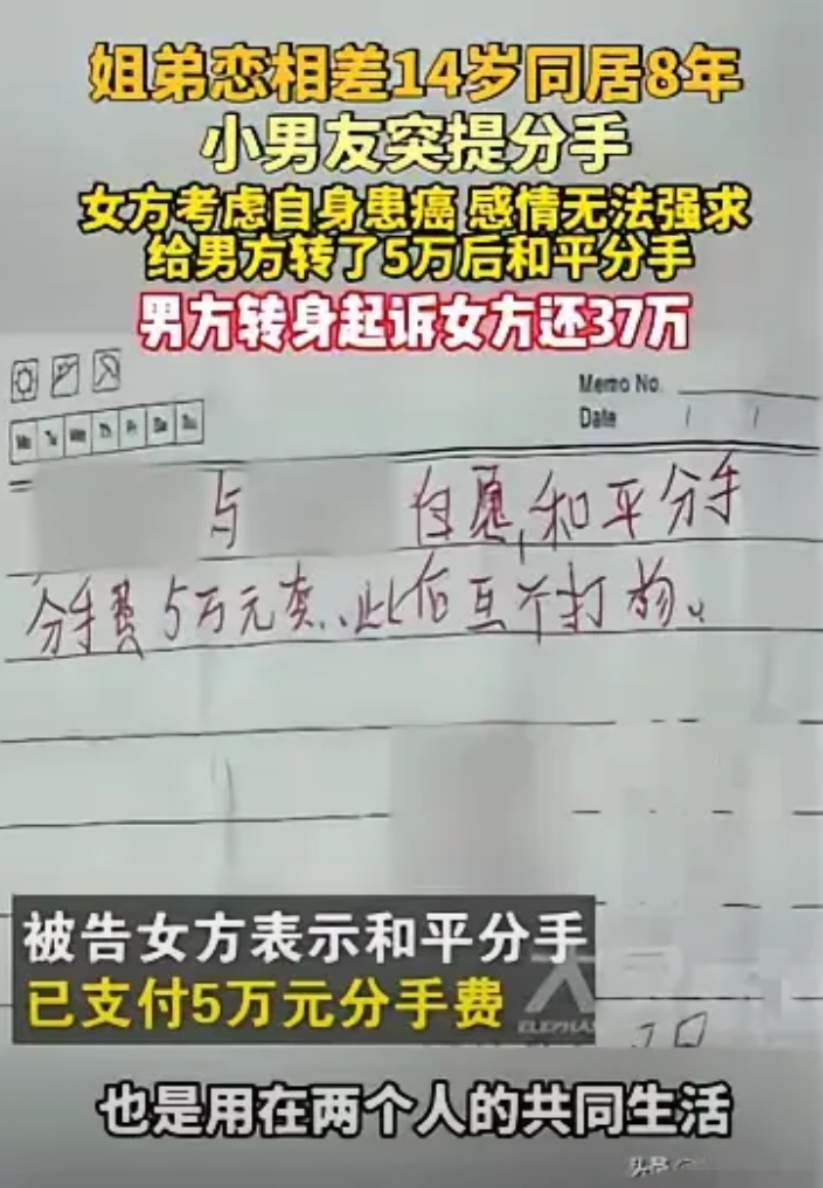 姐弟恋相差14岁同居8年
小男友突提分手
女方考虑自身患癌 感情无法强求
给男方转了5万后和平分手
男方转身起诉女方还37万
Memo No.
Date / /
Mo Tu We Th Fr Sa Su
与 自愿,和平分手
分手费5万元奕..此后互不打扰。
被告女方表示和平分手
已支付5万元分手费
ELEPHA
也是用在两个人的共同生活
头条